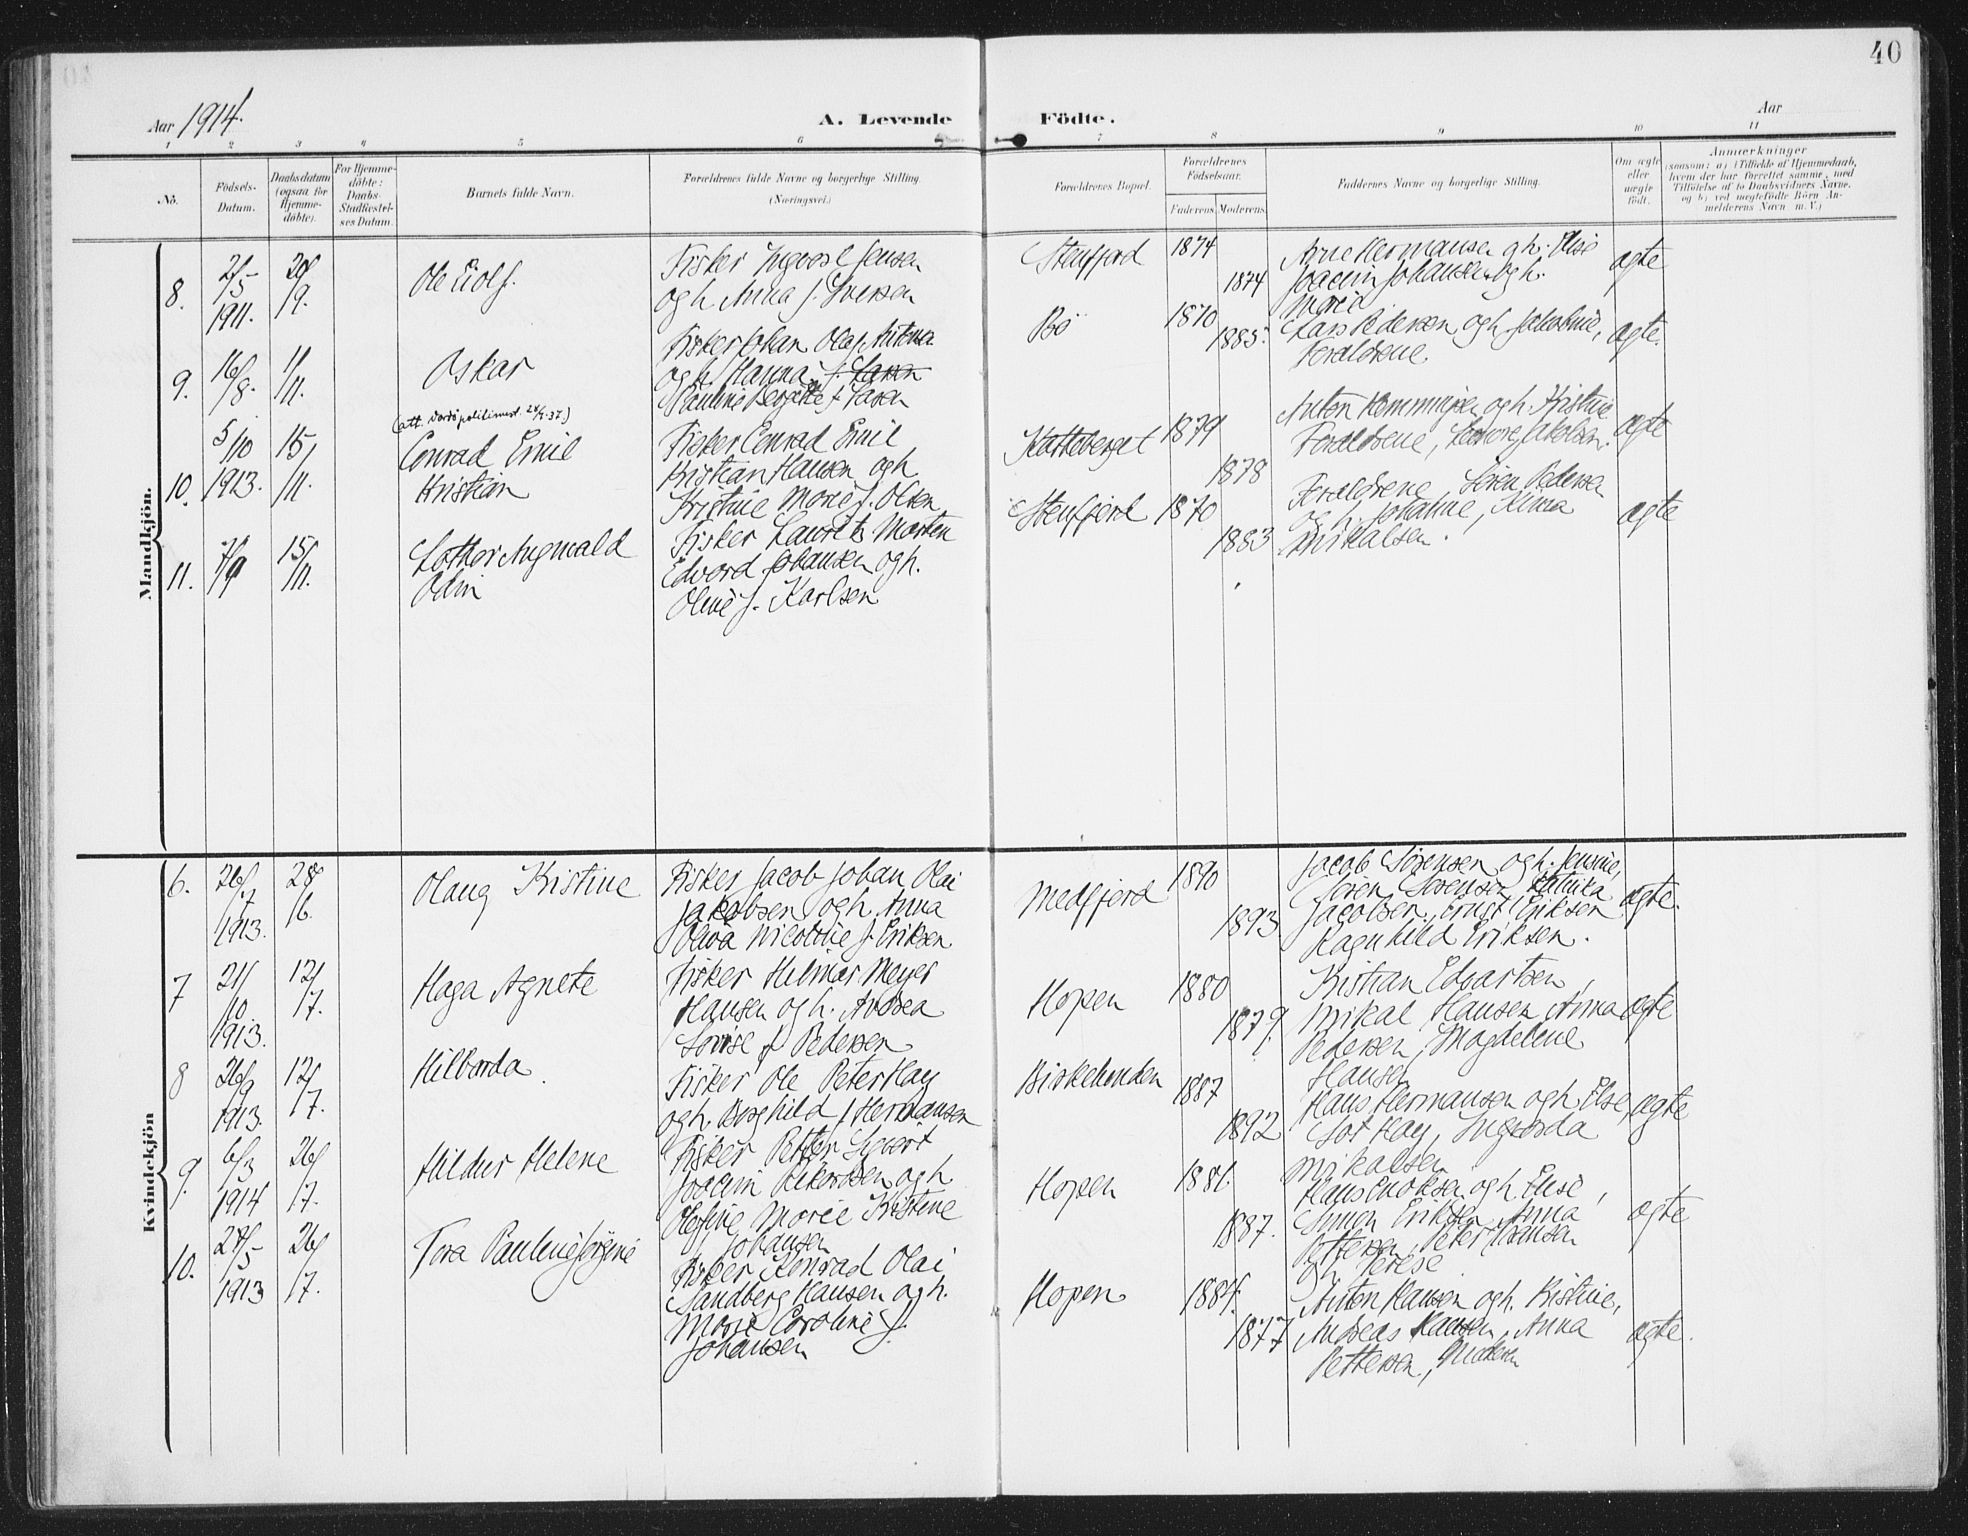 40
Aar 1914.
A. Levende Födte.
Aar
1 2 3 4 5 6 7 8 9 10 11
No.
Födsels-
Datum.
Daabsdatum
(ogsaa for
Hjemme-
döbte).
For Hjemme-
döbte:
Daabs-
Stadfæstel-
ses Datum.
Barnets fulde Navn.
Forældrenes fulde Navne og borgerlige Stilling.
(Næringsvei.)
Forældrenes Bopæl.
Forældrenes
Födselsaar.
Faderens. Moderens.
Faddernes Navne og borgerlige Stilling.
Om ægte
eller
uægte
födt.
Anmærkninger
(saasom: a) i Tilfælde af Hjemmedaab,
hvem der har forrettet samme, med
Tilföielse af to Daabsvidners Navne,
og b) ved uægtefödte Börn An-
melderens Navn m. V.)
Mandkjön.
8.
1911.
20/
9.
Ole Eiolf.
Fisker Ingvart Jensen
og h. Anna f. Iversen
Stenfjord
1874
1874
Arne Hermansen og h. Else
Joacim Johansen og h.
Marie
ægte
9.
16/
8.
1/
11.
Oskar
Fisker Johan Olaf
og h. Hanna f. Larsen
Pauline Bergitte f. Larsen
Bø
1870
1885.
Lars Pedersen og h. Jakobine,
Forældrene.
ægte.
10.
5/10
1913.
15/
11.
Conrad Emil
Kristian
Fisker Conrad Emil
Kristian Hansen og h.
Kristine Marie f. Olsen
Katteberget
1879
1878
Anton Hemmingsen og h. Kristine
Forældrene, Jakobsen.
ægte
11.
15/
11.
Lothar Angvald
Odin
Fisker Lauritz Morten
Edvard Johansen og h.
Olive f. Karlsen
Stenfjord
1870
1883
Forældrene, Sören Pedersen
og h. Johanne,
Mikalsen.
ægte
Kvindekjön
6.
26/
7
1913.
28/
6.
Olaug Kristine
Fisker Jacob Johan Olai
Jakobsen og h. Anna
Nicoline f. Eriksen
Medfjord
1890
1893
Jacob Sørensen og h. Jensine,
Sören Sørensen,
Jacobsen, Ernst Eriksen
Ragnhild Eriksen.
ægte.
7
21/
10.
1913.
12/
7.
Haga Agnete
Fisker Hilmar Meyer
Hansen og h. Andrea
Lovise f. Pedersen
Hopen
1880
1879.
Kristian Edvartsen,
Mikal Hansen, Anna
Pedersen, Magdelene
Hansen
ægte
8
26/9
1913.
12/
7.
Hilborda
Fisker Ole Peter Hay
og h. Borghild f. Hermansen
1887
1892
Hans Hermansen og h. Else,
Lot Hay, Ingvarda
Mikalsen
ægte
9.
6/3
1914
26/
7.
Hildur Helene
Fisker Petter Sivert
Joacim Rikardsen og h.
Marie Kristine
Johansen
Hopen
1881.
1887.
Hans Enoksen og h. Else,
Simon Eriksen, Anna
Pettersen, Peter Hansen
og h. Perese
ægte
10.
1913
26/
7.
Tora Pauline Jørgine
Fisker Konrad Olai
Sandberg Hansen og h.
Marie Caroline f.
Johansen
Hopen
1884.
1877
Anton Hansen og h. Kristine,
Andreas Hansen, Anna
Pettersen,
ægte.